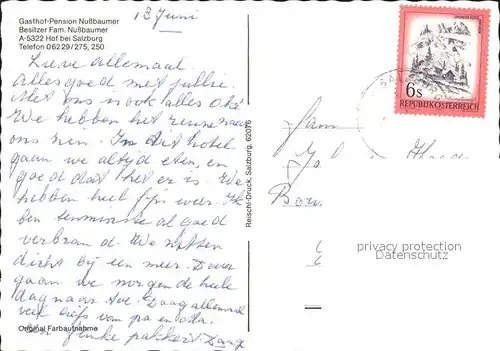 Gasthof-Pension Nußbaumer
Besitzer Fam. Nußbaumer
A-5322 Hof bei Salzburg
Telefon 06229/275, 250
13 Juni
Lieve allemaal.
Alles goed met jullie
Met ons is ook alles oké
We hebben het naar
ons zin. In dit hotel
gaan we altijd eten, en
goed dat het er is. We
hebben heel fijn weer. Ik
ben tenminste al goed
verbrand. We zitten
dicht bij een meer.
gaan we morgen de hele
dag naar toe. Daag allemaal
veel liefs van pa en
flinke pakkerd Daag
Original Farbaufnahme
Reischl-Druck, Salzburg, 62076
6s
REPUBLIK ÖSTERREICH
Fam
privacy protection
Datenschutz